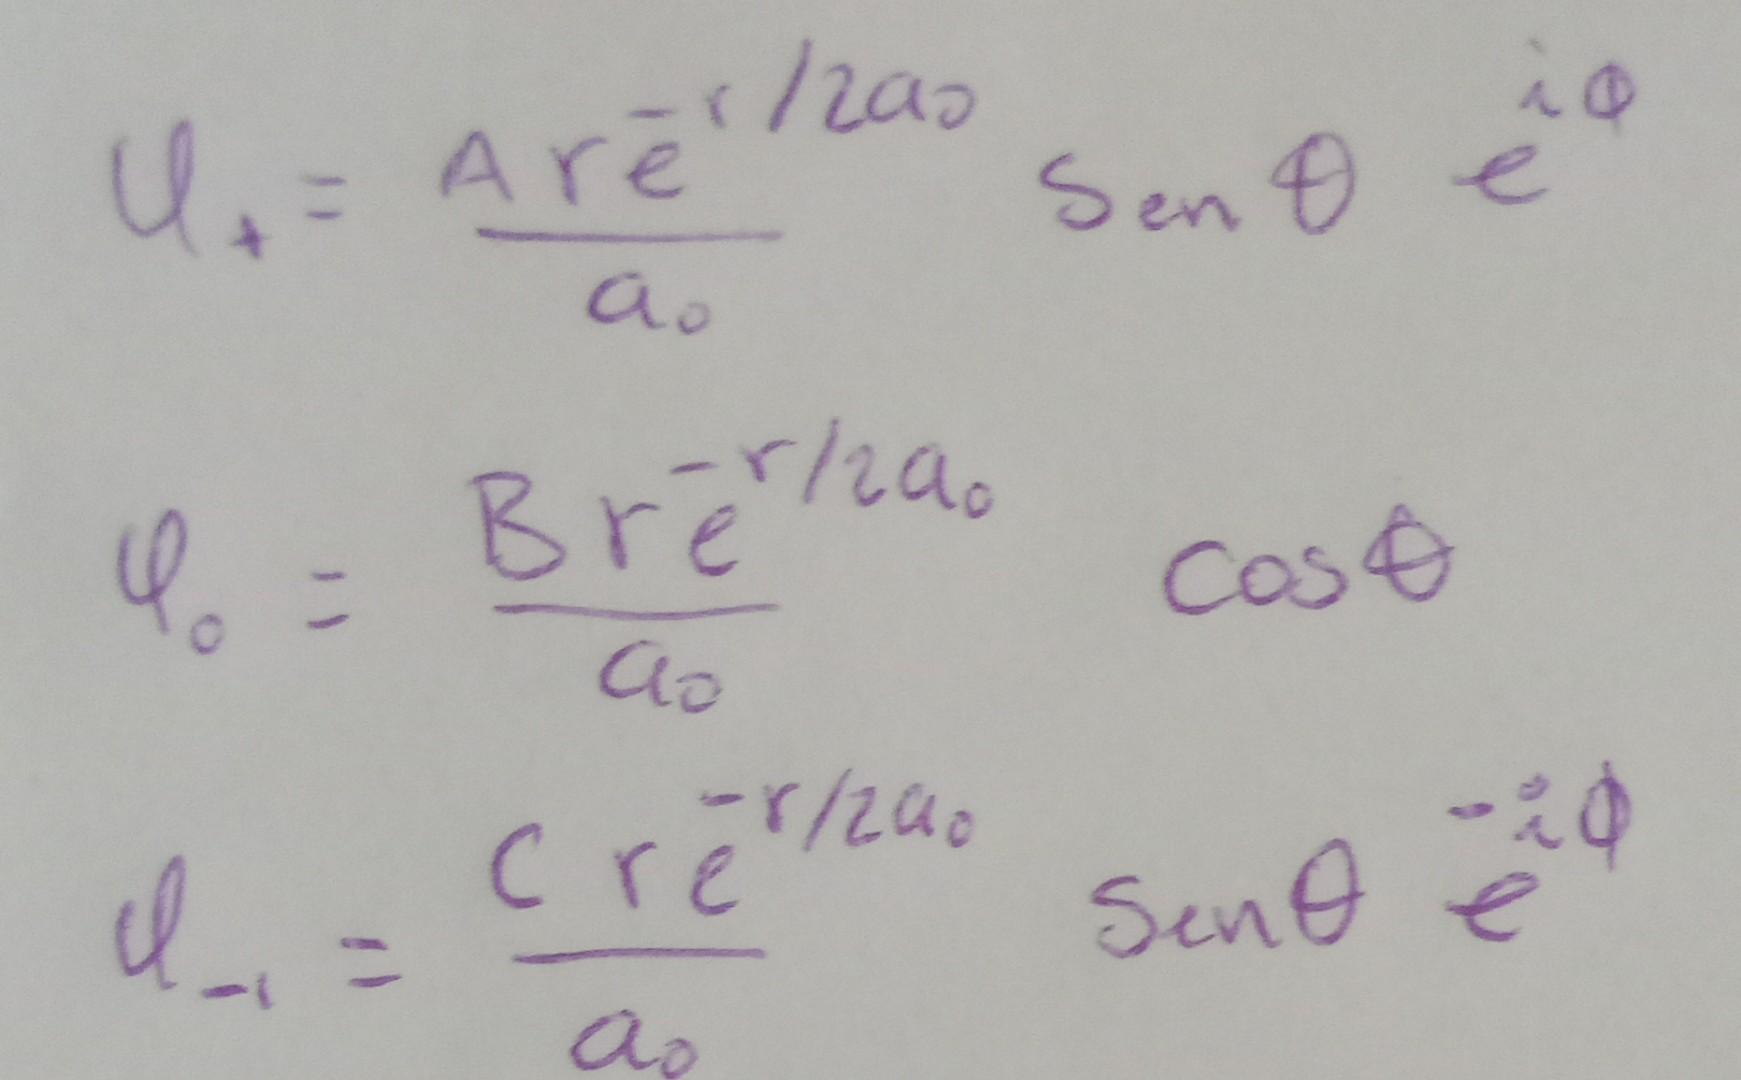 φ₊ = A r e^{-r/2a₀} / a₀ sen θ e^{iϕ}
φ₀ = B r e^{-r/2a₀} / a₀ cos θ
φ₋₁ = C r e^{-r/2a₀} / a₀ sen θ e^{-iϕ}